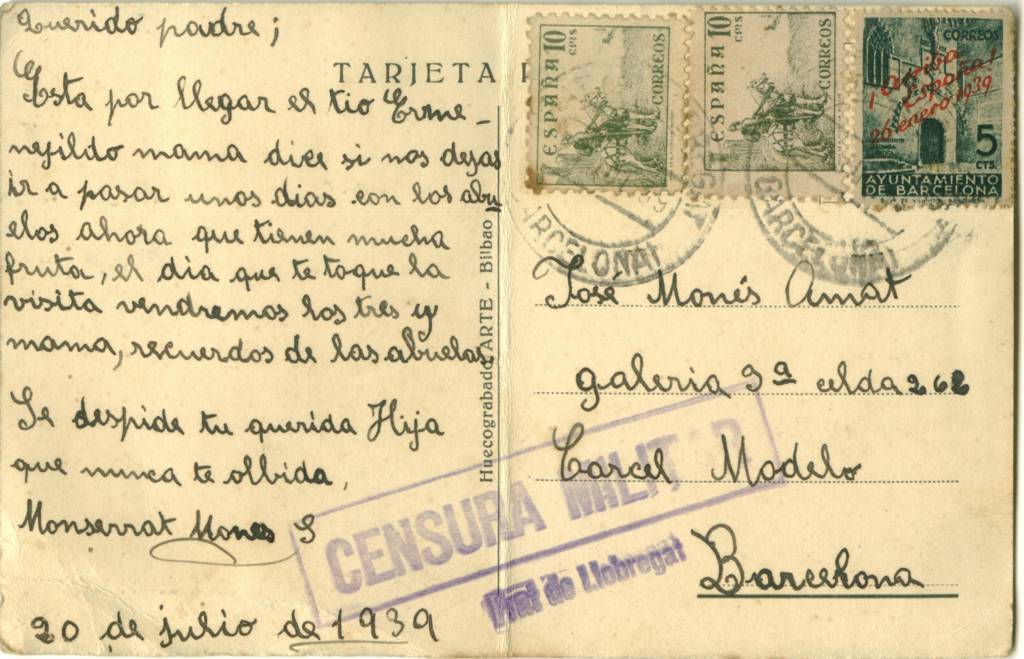 Querido padre;
Esta por llegar el tio Erme-
nejildo mama dice si nos dejas
ir a pasar unos dias con los abu
elos ahora que tienen mucha
fruta, el dia que te toque la
visita vendremos los tres y
mama, recuerdos de las abuelas
Se despide tu querida Hija
que nunca te olbida,
Monserrat Mones S
20 de julio de 1939
TARJETA P
Huecograbado ARTE - Bilbao
ESPAÑA 10 CTS
CORREOS
ESPAÑA 10 CTS
CORREOS
CORREOS
¡Arriba
España!
26 enero 1939
5
CTS.
AYUNTAMIENTO
DE BARCELONA
BARCELONA
BARCELONA
José Monés Amat
galeria 3ª celda 262
Carcel Modelo
Barcelona
CENSURA MILITAR
Prat de Llobregat